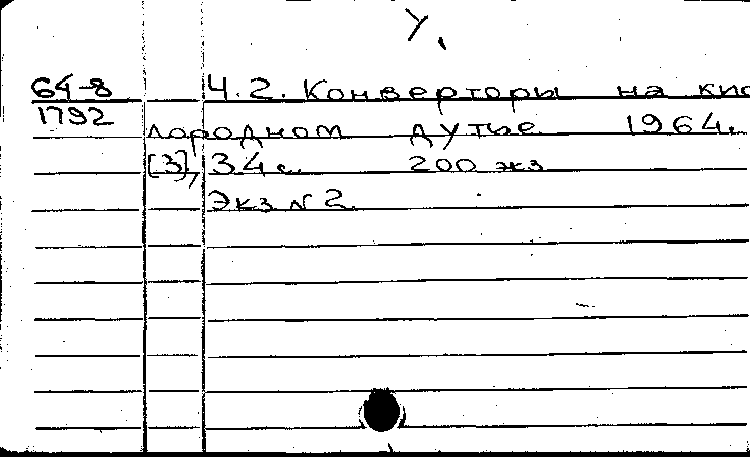 У.
64-8 Ч.2. Конверторы на кис
1792
лородном дутье 1964.
[3], 34 с. 200 экз
Экз N 2.